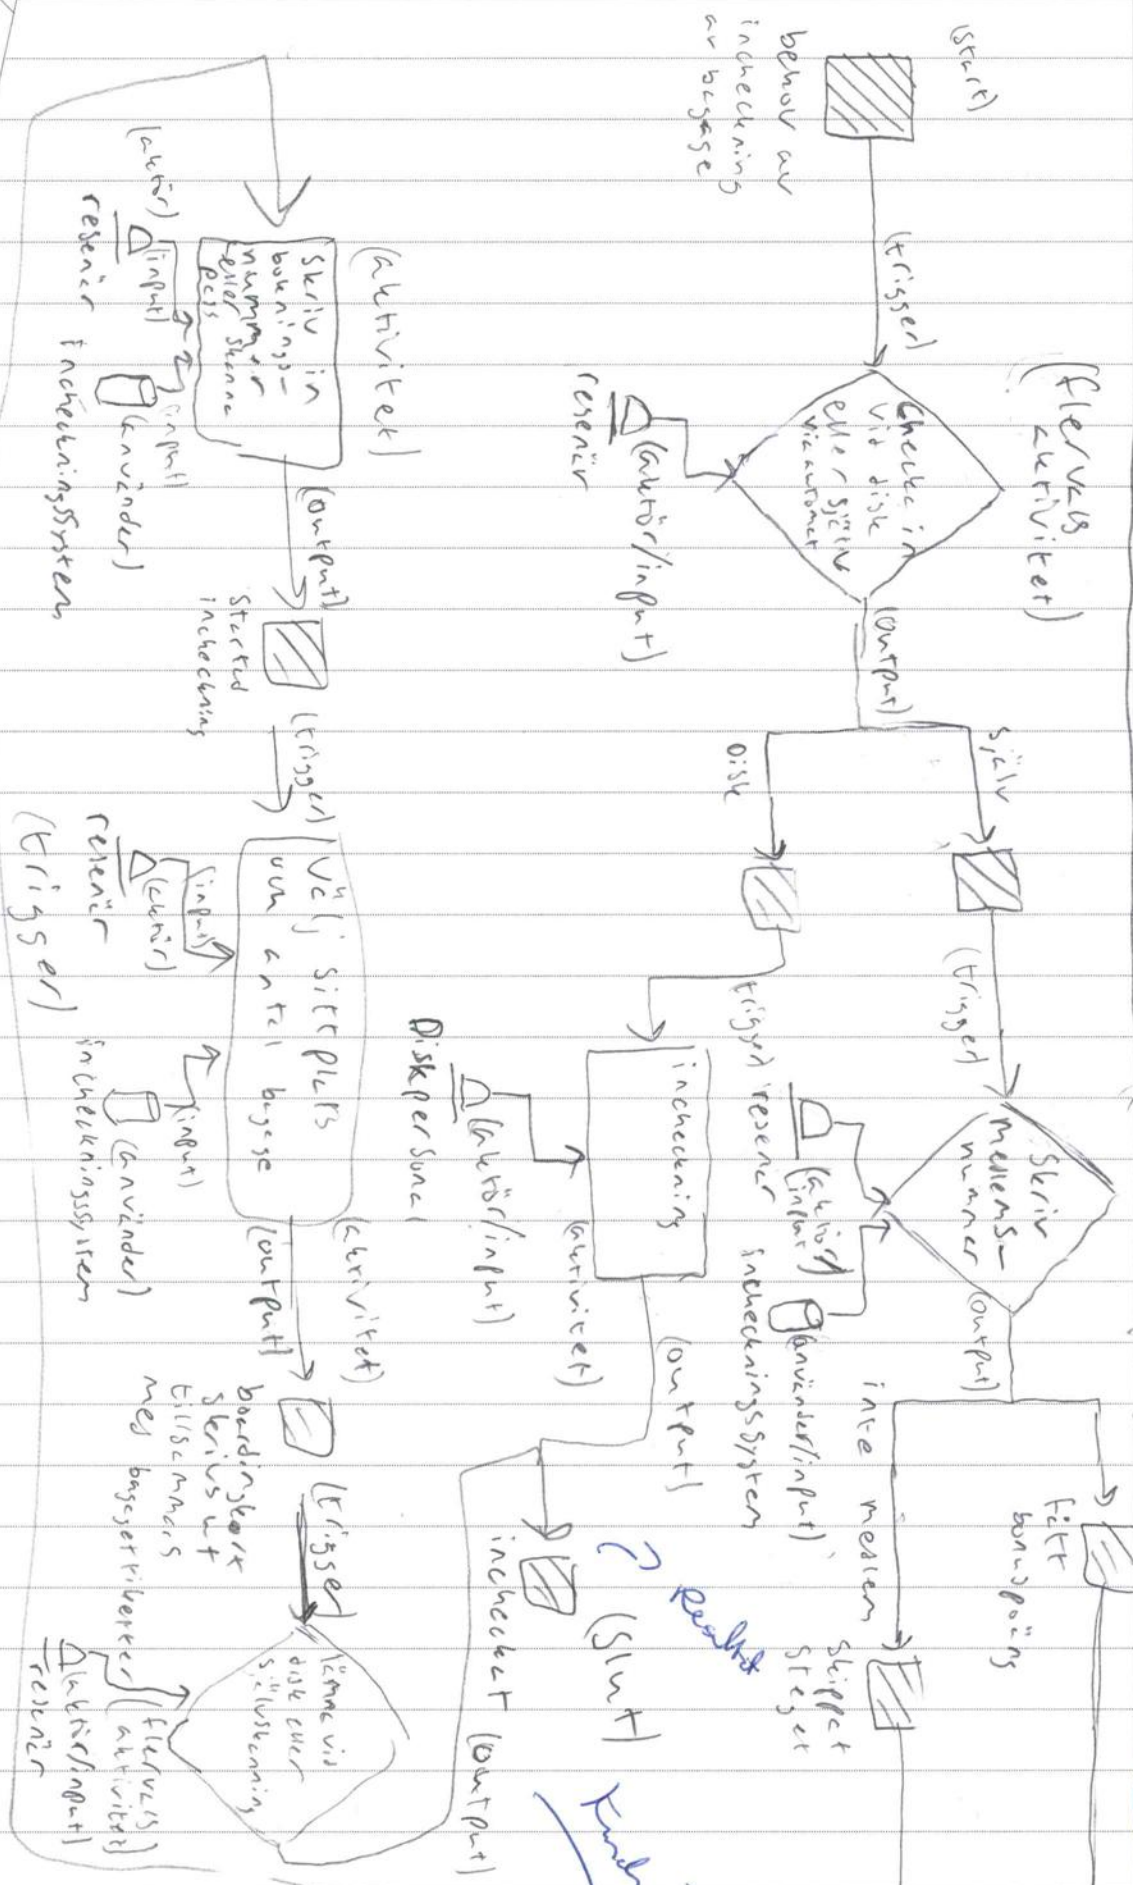 (start)
behov av
incheckning
av bagage
(trigger)
(flervals
aktivitet)
Checka in
vid disk
eller själv
via automat
(aktör/input)
resenär
(output)
själv
Disk
(trigger)
Skriv
medlems-
nummer
(aktör)
(input)
resenär
(använder/input)
incheckningssystem
(output)
fått
bonuspoäng
inte medlem
skippat
steget
(trigger)
incheckning
(aktivitet)
(aktör/input)
Diskpersonal
(output)
(slut)
incheckat
? Resultat
(output)
(aktivitet)
Skriv in
boknings-
nummer
eller skanna
pass
(aktör)
(input)
resenär
(input)
(använder)
incheckningssystem
(output)
Startad
incheckning
(trigger)
Välj sittplats
och antal bagage
(aktivitet)
(input)
(aktör)
resenär
(input)
(använder)
incheckningssystem
(output)
boardingkort
skrivs ut
tillsammans
med bagageetiketter
(trigger)
lämna vid
disk eller
självskanning
(flervals
aktivitet)
(aktör/input)
resenär
(trigger)